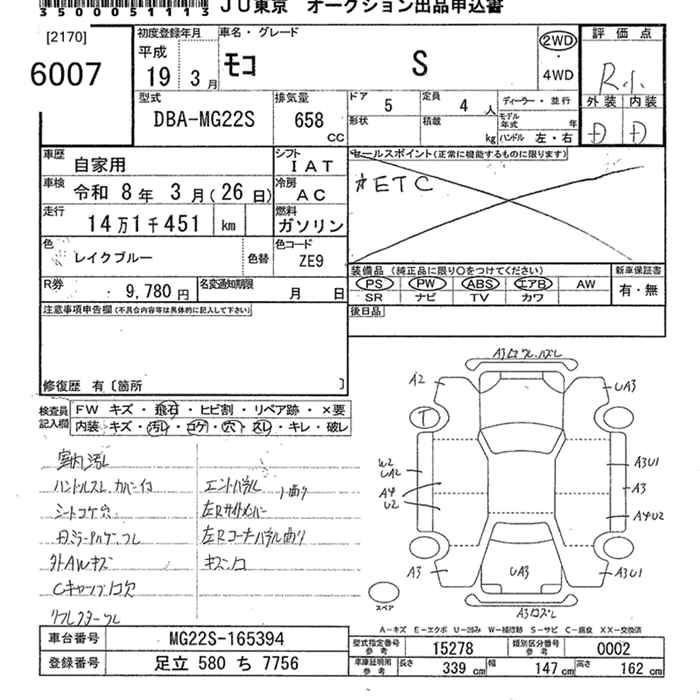 3500051113
JU東京 オークション出品申込書
[2170]
6007
初度登録年月
平成
19年 3月
車名・グレード
モコ S
2WD
・
4WD
評価点
R小
外装 内装
D D
型式
DBA-MG22S
排気量
658
cc
ドア
5
定員
4 人
ディーラー・並行
形状
積載
kg
モデル年式 年
ハンドル 左・右
車歴
自家用
シフト
IAT
車検
令和 8年 3月(26日)
冷房
AC
走行
14万1千451 km
燃料
ガソリン
色
レイクブルー
色替
色コード
ZE9
R券
9,780円
名変通知期限
月 日
セールスポイント(正常に機能するものに限ります)
#ETC
装備品 (純正品に限り○をつけてください)
新車保証書
PS PW ABS エアB AW
有・無
SR ナビ TV カワ
後日品
注意事項申告欄(不具合内容等は具体的に記入して下さい)
修復歴 有〔箇所 〕
検査員記入欄
FW キズ・飛石・ヒビ割・リペア跡・×要
内装・キズ・汚レ・コゲ・穴・スレ・キレ・破レ
室内汚レ
ハンドルスレ、カバーイコ
シートコゲ穴
外AWキズ
リフレクターワレ
左Rサイドメンバー
左Rコーナーパネル曲り
A2
UA3
T
W2
UA2
A4
U2
A3U1
A3
A4U2
A3
UA3
A3U1
スペア
A-キズ E-エクボ U-凹み W-補修跡 S-サビ C-腐食 XX-交換済
車台番号 MG22S-165394
登録番号 足立 580 ち 7756
型式指定番号 参考 15278
類別区分番号 参考 0002
車庫証明用 参考
長さ 339 cm
幅 147 cm
高さ 162 cm